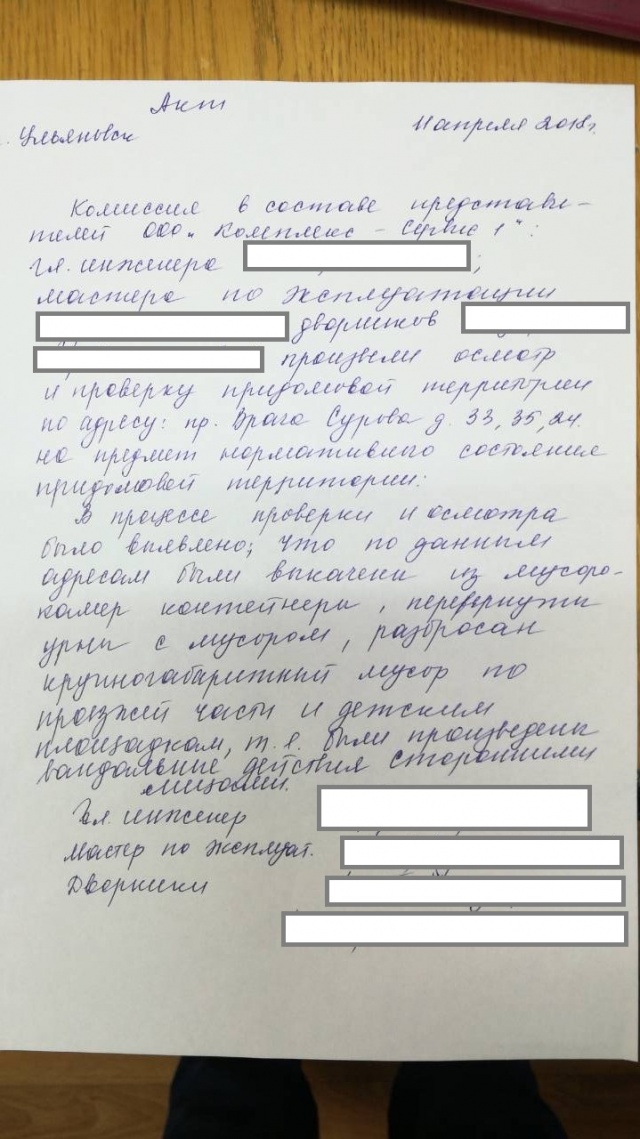 Акт
г. Ульяновск 11 апреля 2018г.
Комиссия в составе представи-
телей ООО „Комплекс - Сервис 1":
гл. инженера ;
мастера по эксплуатации
дворников
произвели осмотр
и проверку придомовой территории
по адресу: пр. Врача Сурова д. 33, 35, 24.
на предмет нормативного состояния
придомовой территории:
В процессе проверки и осмотра
было выявлено; что по данным
адресам были выкачены из мусоро-
камер контейнеры, перевернуты
урны с мусором, разбросан
крупногабаритный мусор по
проезжей части и детским
площадкам, т.е. были произведены
вандальные действия сторонними
лицами.
Гл. инженер
Мастер по эксплуат.
Дворники